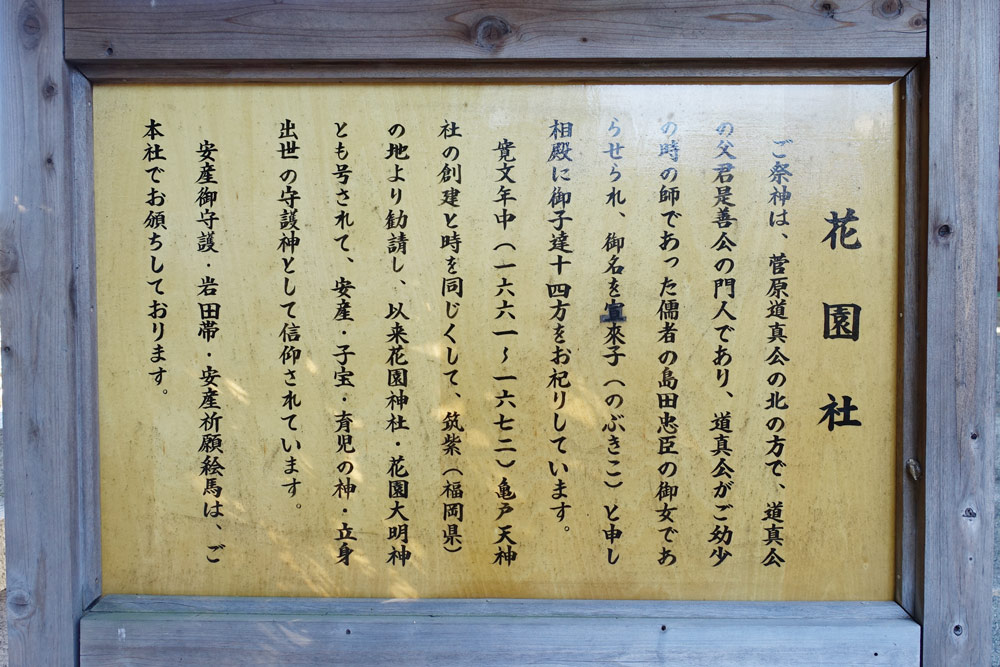 花園社
ご祭神は、菅原道真公の北の方で、道真公
の父君是善公の門人であり、道真公がご幼少
の時の師であった儒者の島田忠臣の御女であ
らせられ、御名を宣來子（のぶきこ）と申し
相殿に御子達十四方をお祀りしています。
寛文年中（一六六一～一六七二）亀戸天神
社の創建と時を同じくして、筑紫（福岡県）
の地より勧請し、以来花園神社・花園大明神
とも号されて、安産・子宝・育児の神・立身
出世の守護神として信仰されています。
安産御守護・岩田帯・安産祈願絵馬は、ご
本社でお頒ちしております。